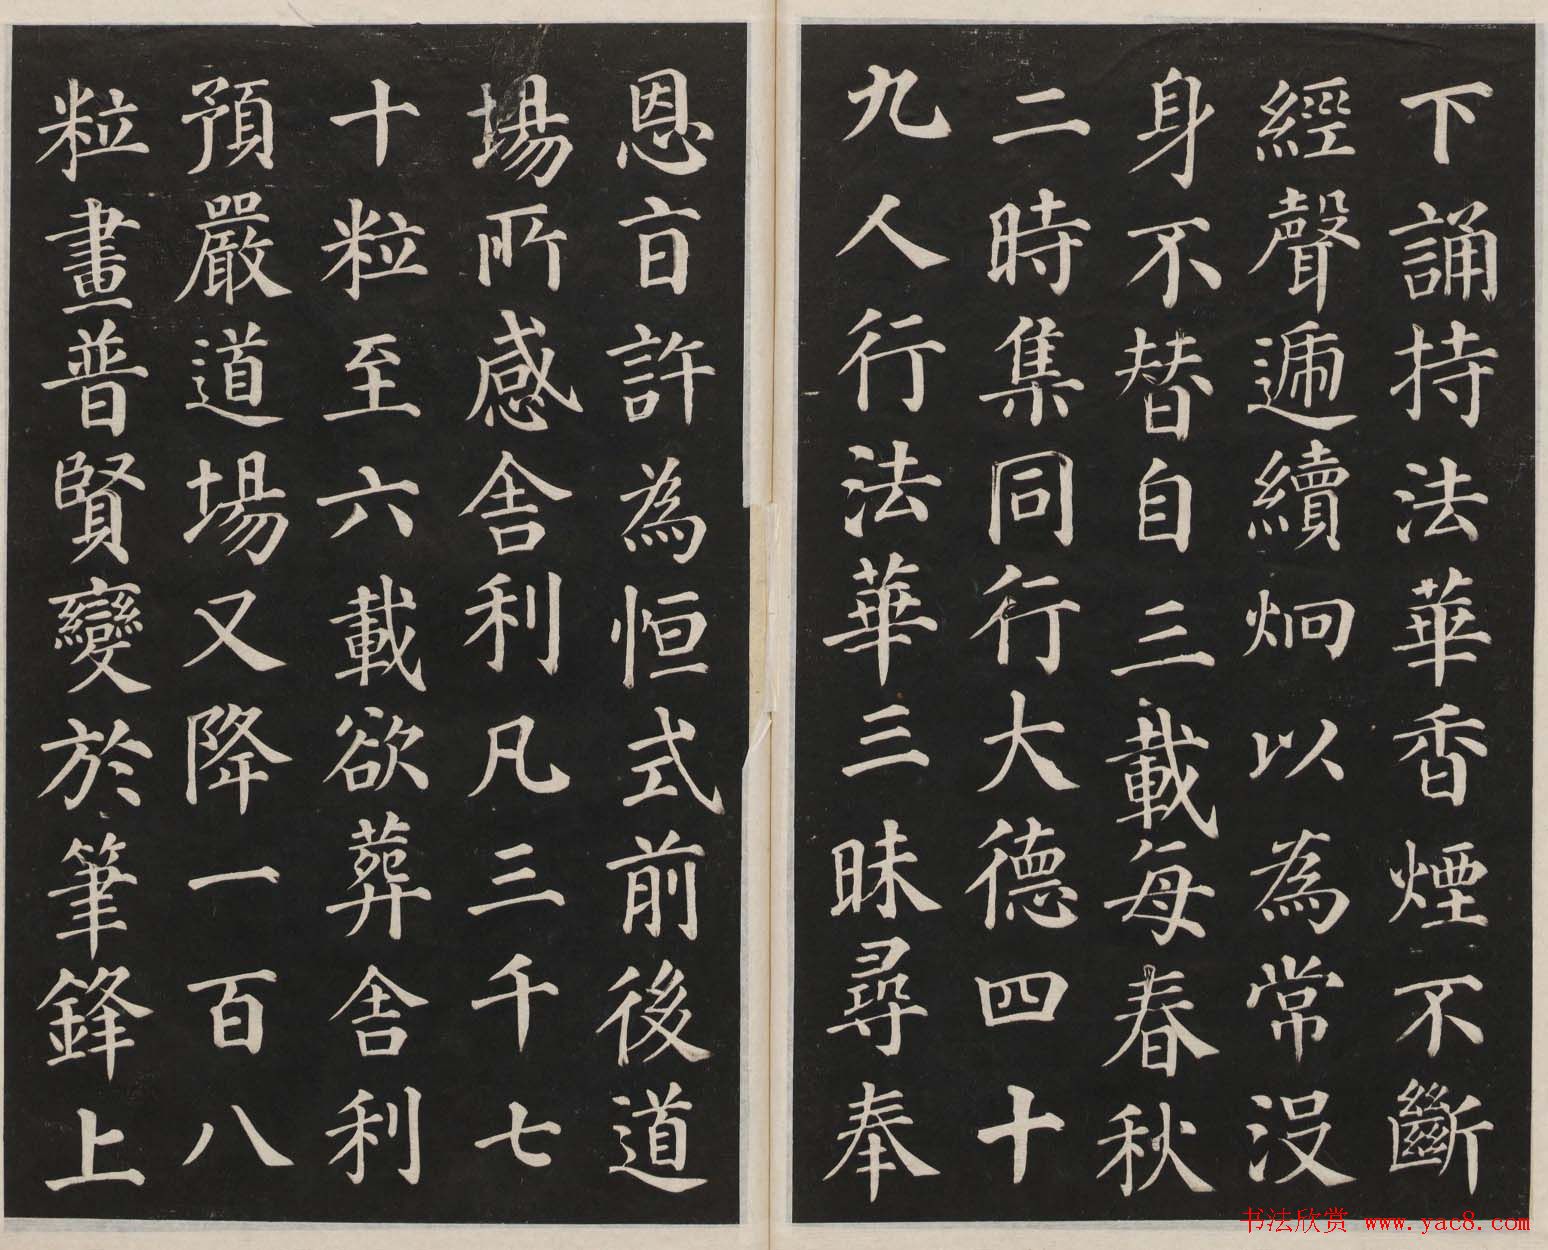 下誦持法華香煙不斷
經聲遞續炯以為常没
身不替自三載每春秋
二時集同行大德四十
九人行法華三昧尋奉
恩㫖許為恒式前後道
場所感舍利凡三千七
十粒至六載欲葬舍利
預嚴道場又降一百八
粒畫普賢變於筆鋒上
书法欣赏 www.yac8.com